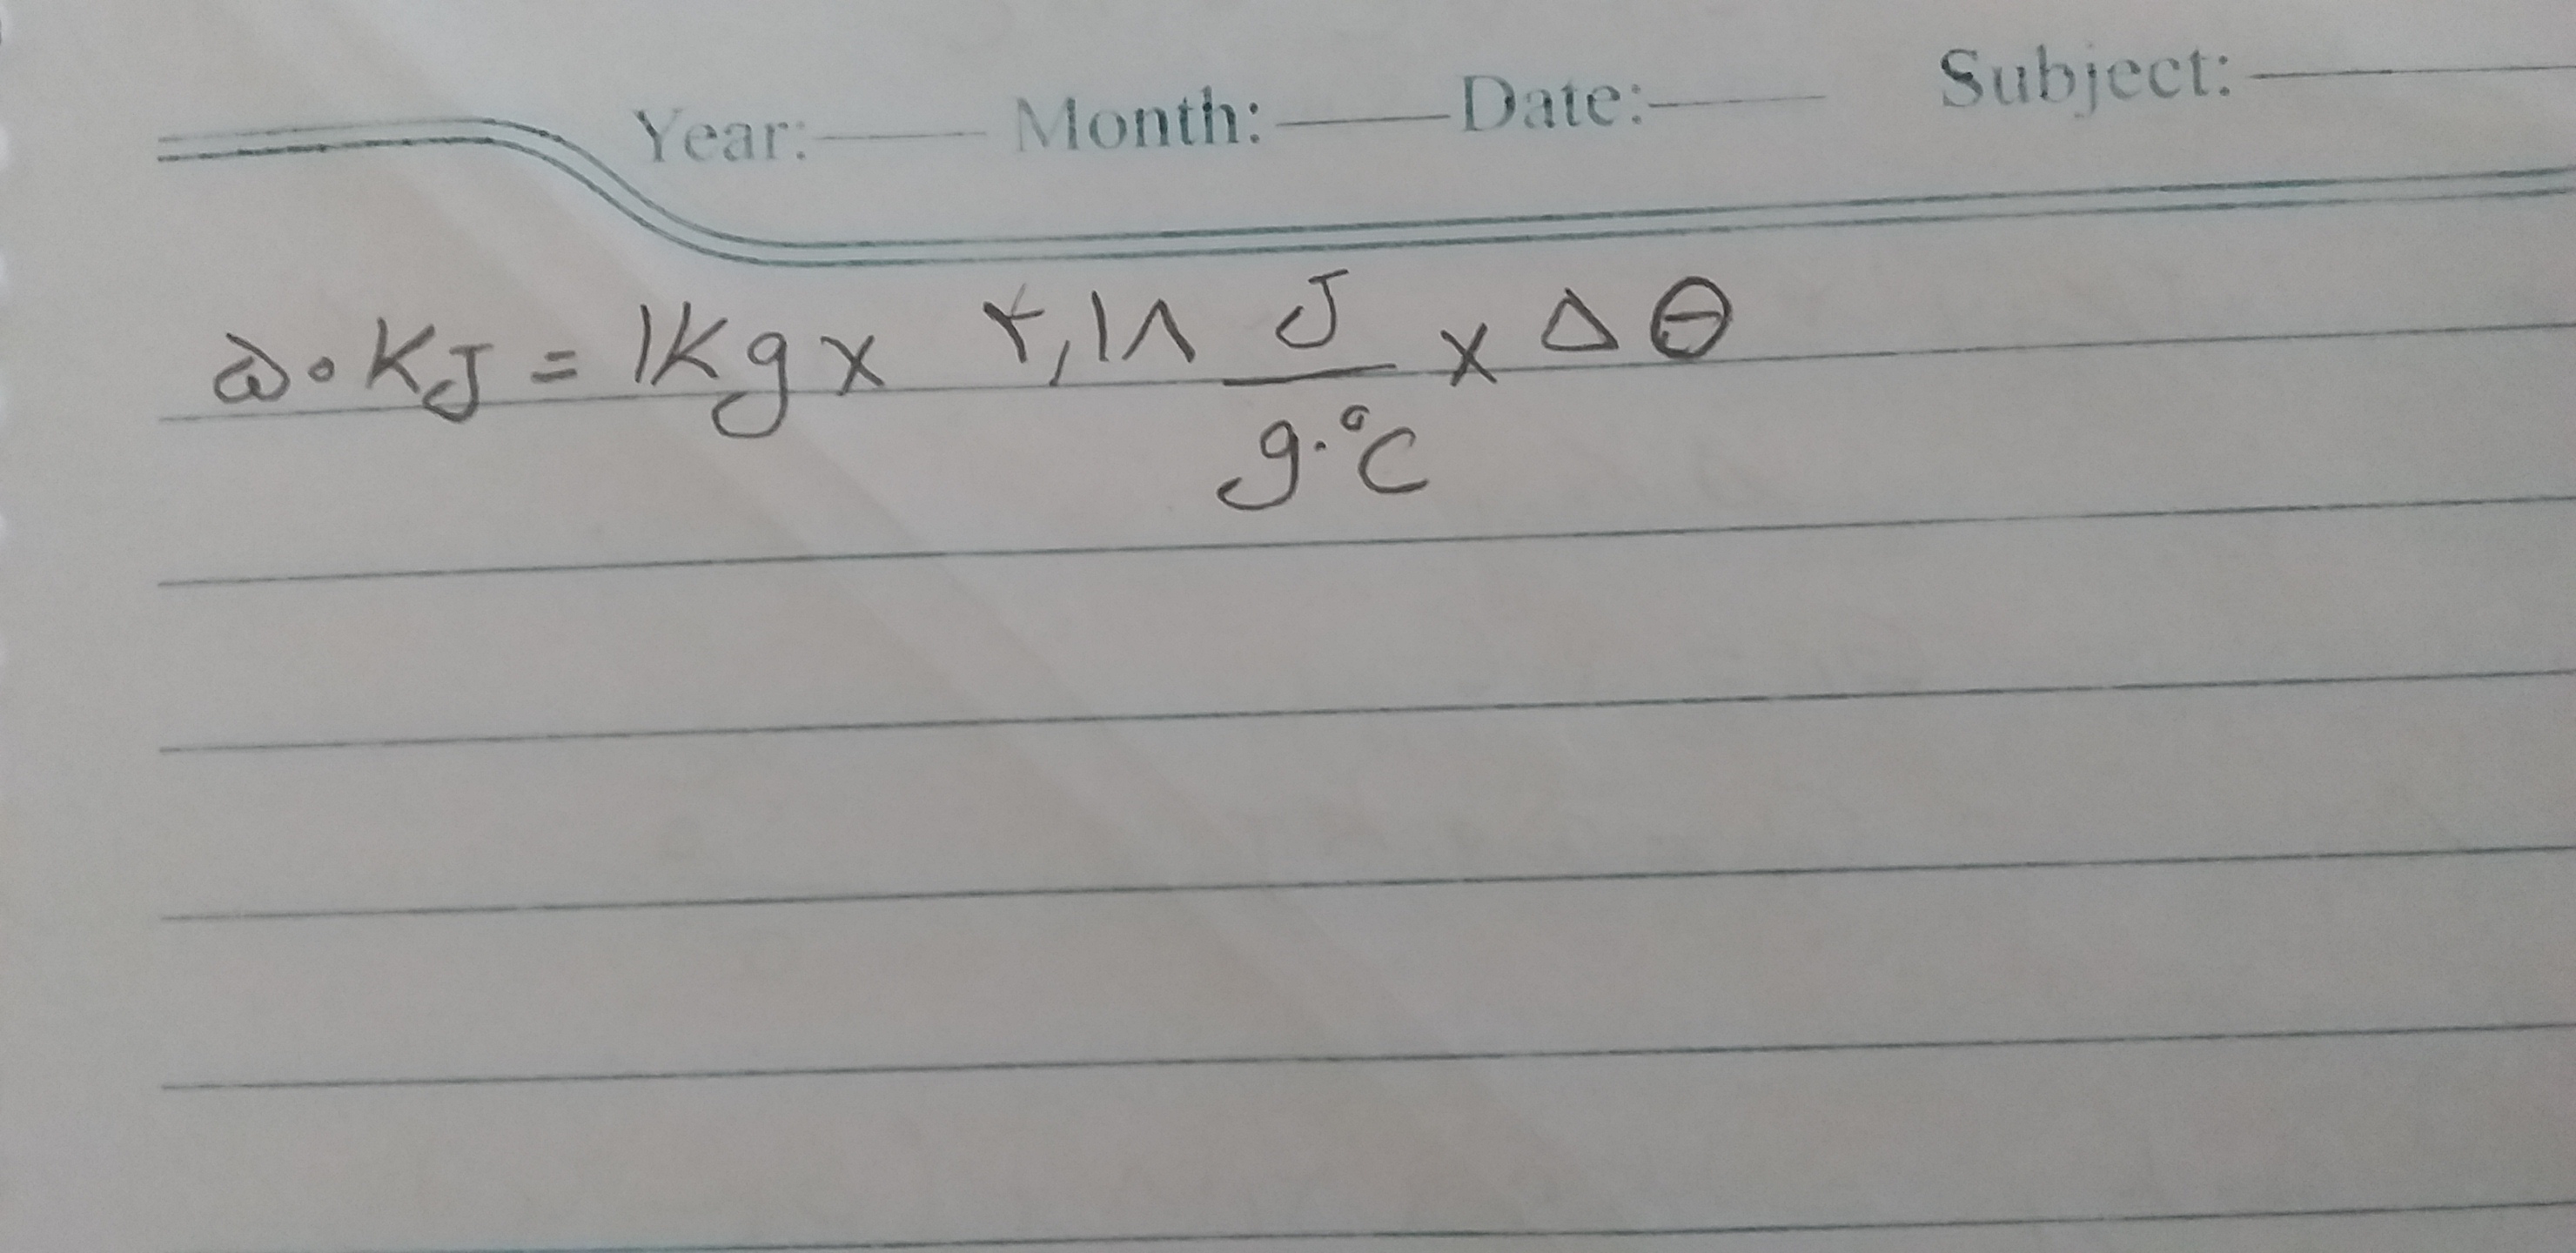 Year: Month: Date: Subject:
۵۰ KJ = ۱Kg × ۴,۱۸ J / g·°C × Δθ